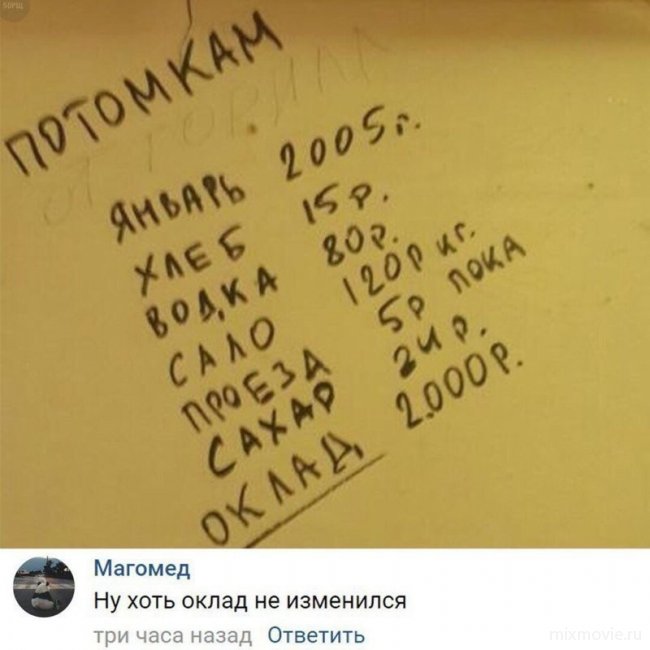 БОРЩ
ПОТОМКАМ
ЯНВАРЬ 2005г.
ХЛЕБ 15р.
ВОДКА 80р.
САЛО 120р кг.
ПРОЕЗД 5р ПОКА
САХАР 24р.
ОКЛАД 2.000р.
Магомед
Ну хоть оклад не изменился
три часа назад Ответить
mixmovie.ru